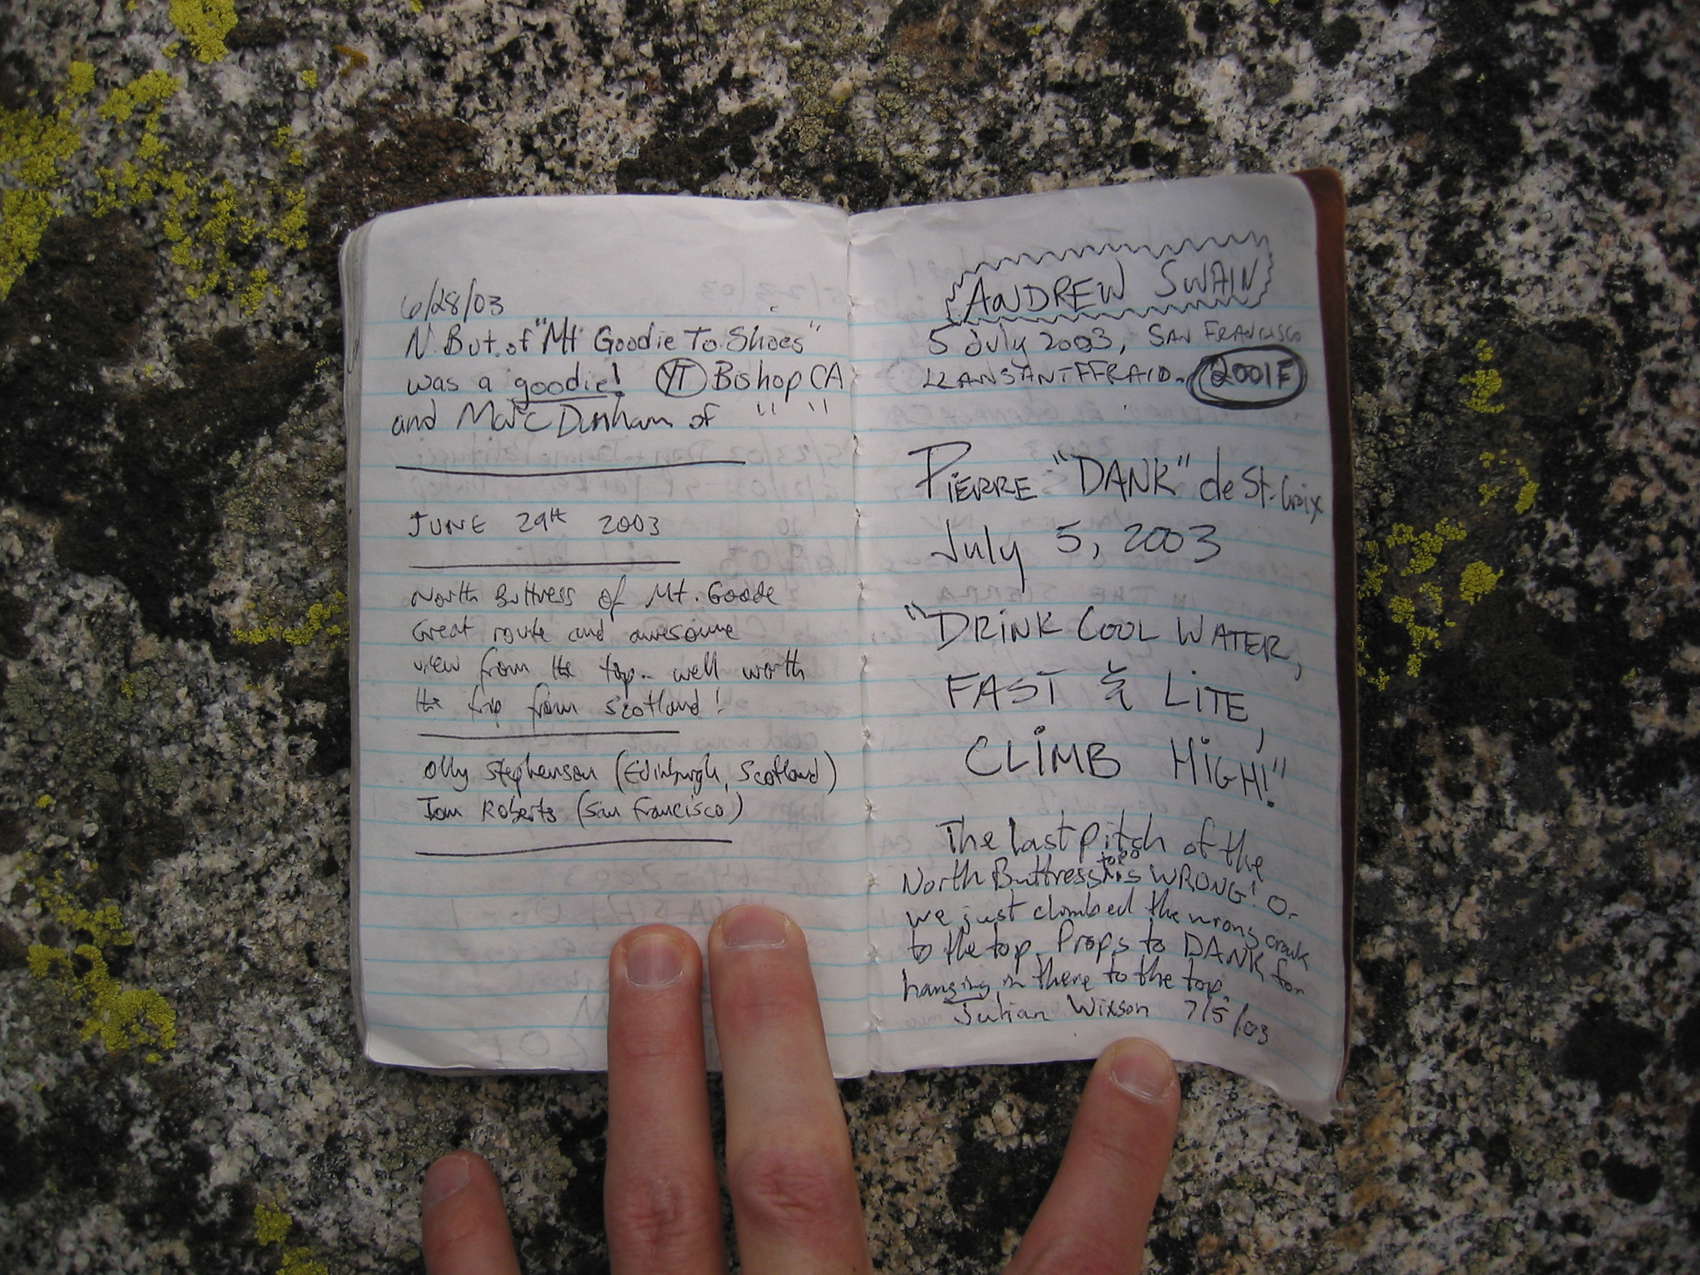 6/28/03
N. But. of "Mt Goodie To Shoes"
was a goodie! YT Bishop CA
and Marc Dunham of " "
JUNE 29th 2003
North Buttress of Mt. Goode
Great route and awesome
view from the top - well worth
the trip from Scotland!
Olly Stephenson (Edinburgh, Scotland)
Tom Roberts (San Francisco)
ANDREW SWAIN
5 July 2003, SAN FRANCISCO
2001F
PiERRE "DANK" de St. Croix
July 5, 2003
"DRiNK COOL WATER,
FAST & LiTE,
CLiMB HiGH!"
The last pitch of the
North Buttress topo is WRONG! Or
we just climbed the wrong crack
to the top. Props to DANK for
hanging in there to the top.
Julian Wixson 7/5/03